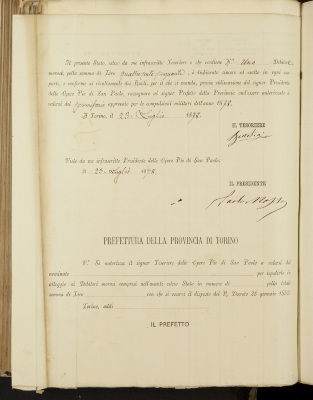 Il presente Stato, steso da me infrascritto Tesoriere e che contiene N.° Uno Debitori
morosi pella somma di Lire quattrocento cinquanta, è dichiarato sincero ed esatto in ogni sua
parte, e conforme ai risultamenti dei Ruoli, per il che si trasmette, previa vidimazione del signor Presidente
delle Opere Pie di San Paolo, rassegnarsi al signor Prefetto della Provincia ond'essere autorizzato a
valersi del approvato per le compulsioni militari dell'anno 1878.
A Torino, il 23 Luglio 1878.
IL TESORIERE
Visto da me infrascritto Presidente delle Opere Pie di San Paolo
il 23 Luglio 1878.
IL PRESIDENTE
PREFETTURA DELLA PROVINCIA DI TORINO
N.° Si autorizza il signor Tesoriere delle Opere Pie di San Paolo a valersi del
nominato per spedirlo in
alloggio ai Debitori morosi compresi nell'avanti esteso Stato in numero di pella total
somma di Lire con che si osservi il disposto del R. Decreto 25 gennaio 1850
Torino, addì
IL PREFETTO